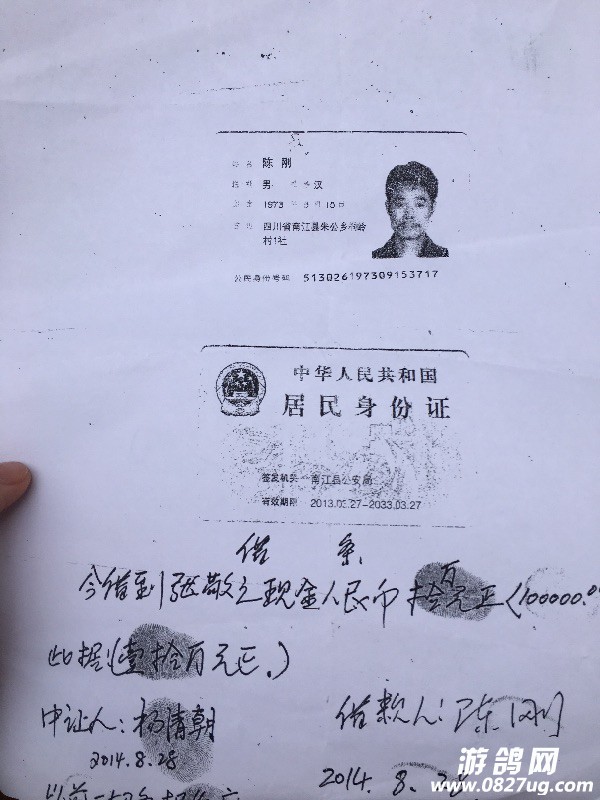 姓名 陈刚
性别 男 民族 汉
1973 年 9月15日
住址 四川省南江县朱公乡 岭
村1社
公民身份号码 513026197309153717
中华人民共和国
居民身份证
签发机关 南江县公安局
有效期限 2013.03.27-2033.03.27
借条
今借到张敬之现金人民币拾万元正(100000.0
此据(壹拾万元正.)
中证人:杨清朝 借款人:陈刚
2014.8.28 2014.8.28
游鸽网
www.0827ug.com